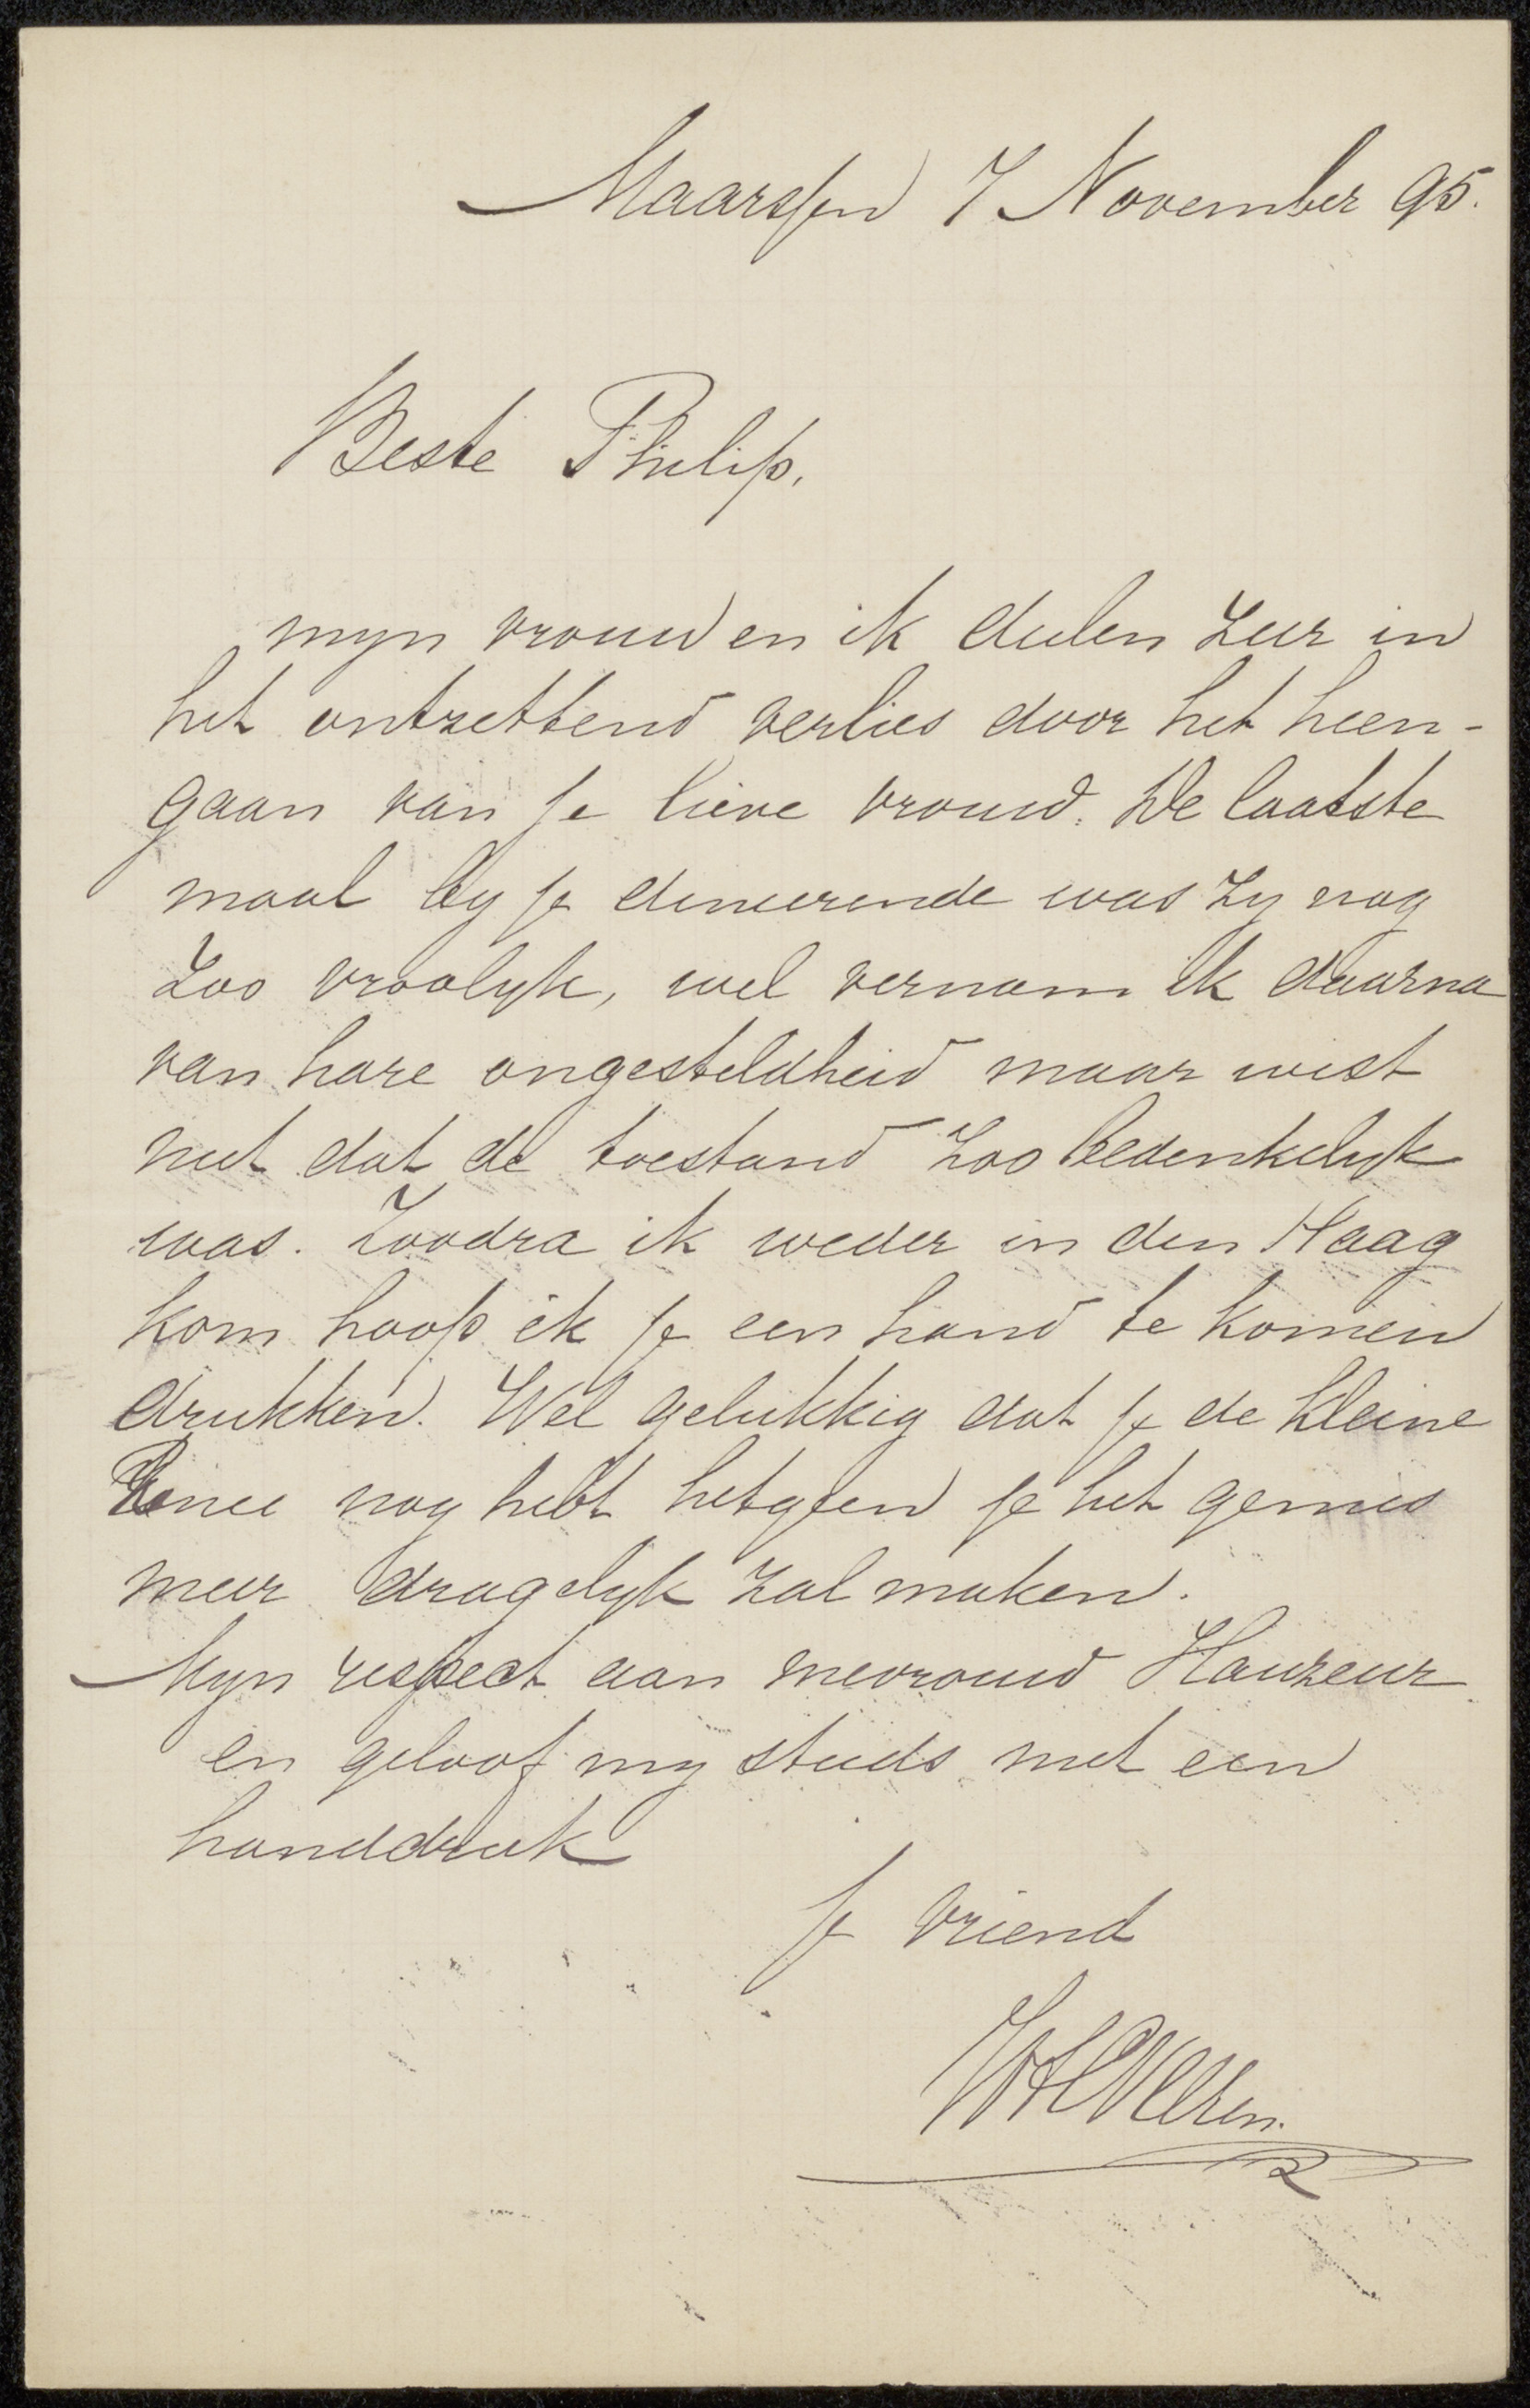 Maarssen 7 November 95.
Beste Philip,
mijn vrouw en ik deelen zeer in
het ontzettend verlies door het heen-
gaan van je lieve vrouw. De laatste
maal by je dineerende was zy nog
zoo vroolyk, wel vernam ik daarna
van hare ongesteldheid maar wist
niet dat de toestand zoo bedenkelyk
was. Zoodra ik weder in den Haag
kom hoop ik je een hand te komen
drukken. Wel gelukkig dat je de kleine
Renee nog hebt hetgeen je het gemis
meer dragelyk zal maken.
Myn respect aan mevrouw Hauzeur
en geloof my steeds met een
handdruk
je vriend